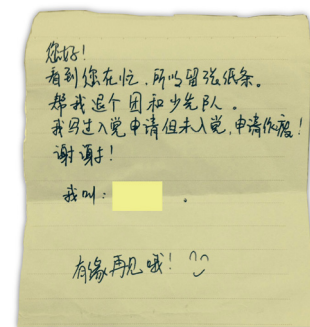 您好！
看到您在忙，所以留张纸条。
帮我退个团和少先队。
我写过入党申请但未入党，申请作废！
谢谢！
我叫：
有缘再见哦！